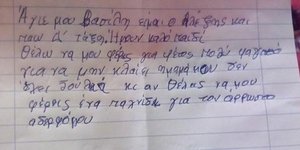 Άγιε μου Βασίλη είμαι ο Αλέξης και
παω Δ' ταξη. Ήμουν καλό παιδί
Θελω να μου φέρεις για φέτος πολύ φαγητό
για να μην κλαίει η μαμά μου δεν
έχει δουλειά κι αν θέλεις να μου
φέρεις ένα παιχνίδι για τον άρρωστο
αδερφό μου